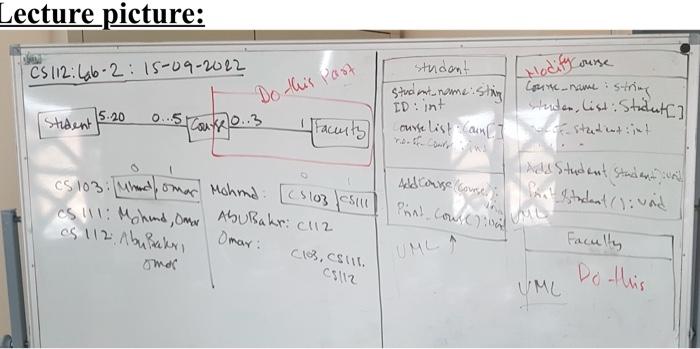 Lecture picture:
CS112: Lab-2: 15-09-2022
Do this Part
Student 5..20 0...5 Course 0..3 1 Faculty
0 1
CS103: Mhmd, omar
CS 111: Mohmd, Omar
CS 112: AbuBakr,
omar
0 1
Mohmd: CS103 CS111
AbuBakr: C112
Omar:
C103, CS111,
CS112
Student
Student_name: String
ID: int
Course List: Cours[]
no_of_cours: int
AddCourse(Course):
void
Print_Course(): void
UML
Modify Course
Course_name: string
Studen_List: Student[]
student: int
AddStudent(student): void
Print_Student(): void
UML
Faculty
Do this
UML